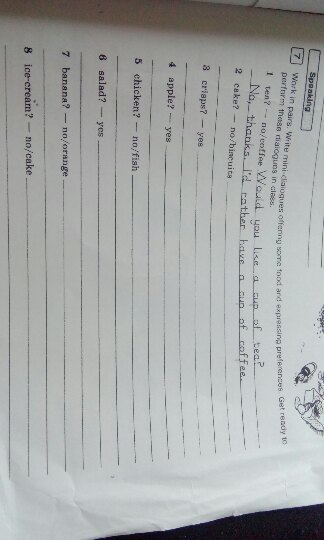 Speaking
7 Work in pairs. Write mini-dialogues offering some food and expressing preferences. Get ready to
perform these dialogues in class.
1 tea? — no/coffee Would you like a cup of tea?
No, thanks. I'd rather have a cup of coffee
2 cake? — no/biscuits
3 crisps? — yes
4 apple? — yes
5 chicken? — no/fish
6 salad? — yes
7 banana? — no/orange
8 ice-cream? — no/cake